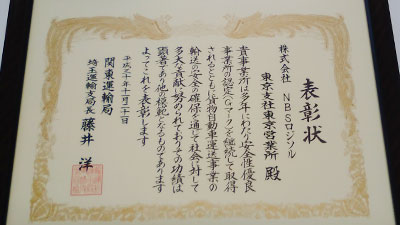 表彰状
株式会社 NBSロジソル
東京支社東京営業所 殿
貴事業所は多年にわたり安全性優良
事業所の認定(Gマーク)を継続して取得
されるとともに貨物自動車運送事業の
輸送の安全の確保を通して社会に対して
多大な貢献に努められておりその功績は
顕著であり他の模範となるものであります
よってこれを表彰します
平成三十年十月二十二日
関東運輸局
埼玉運輸支局長 藤井 洋